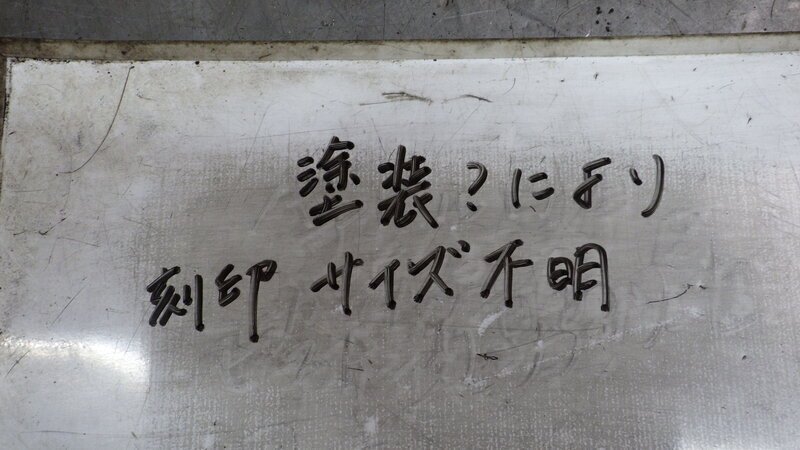 塗装?により
刻印 サイズ不明